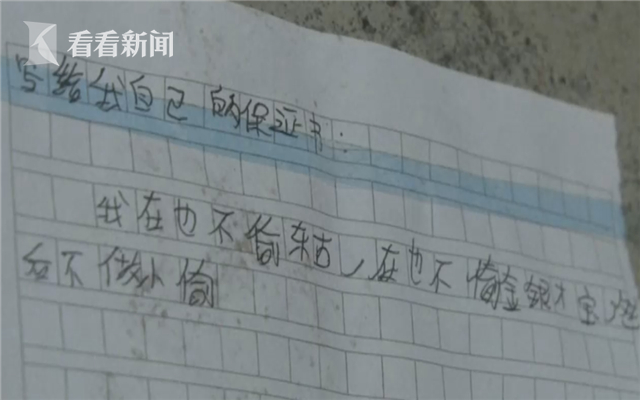 看看新闻
写给我自己的保证书：
我在也不偷东古，在也不偷金银才宝
后不做小偷